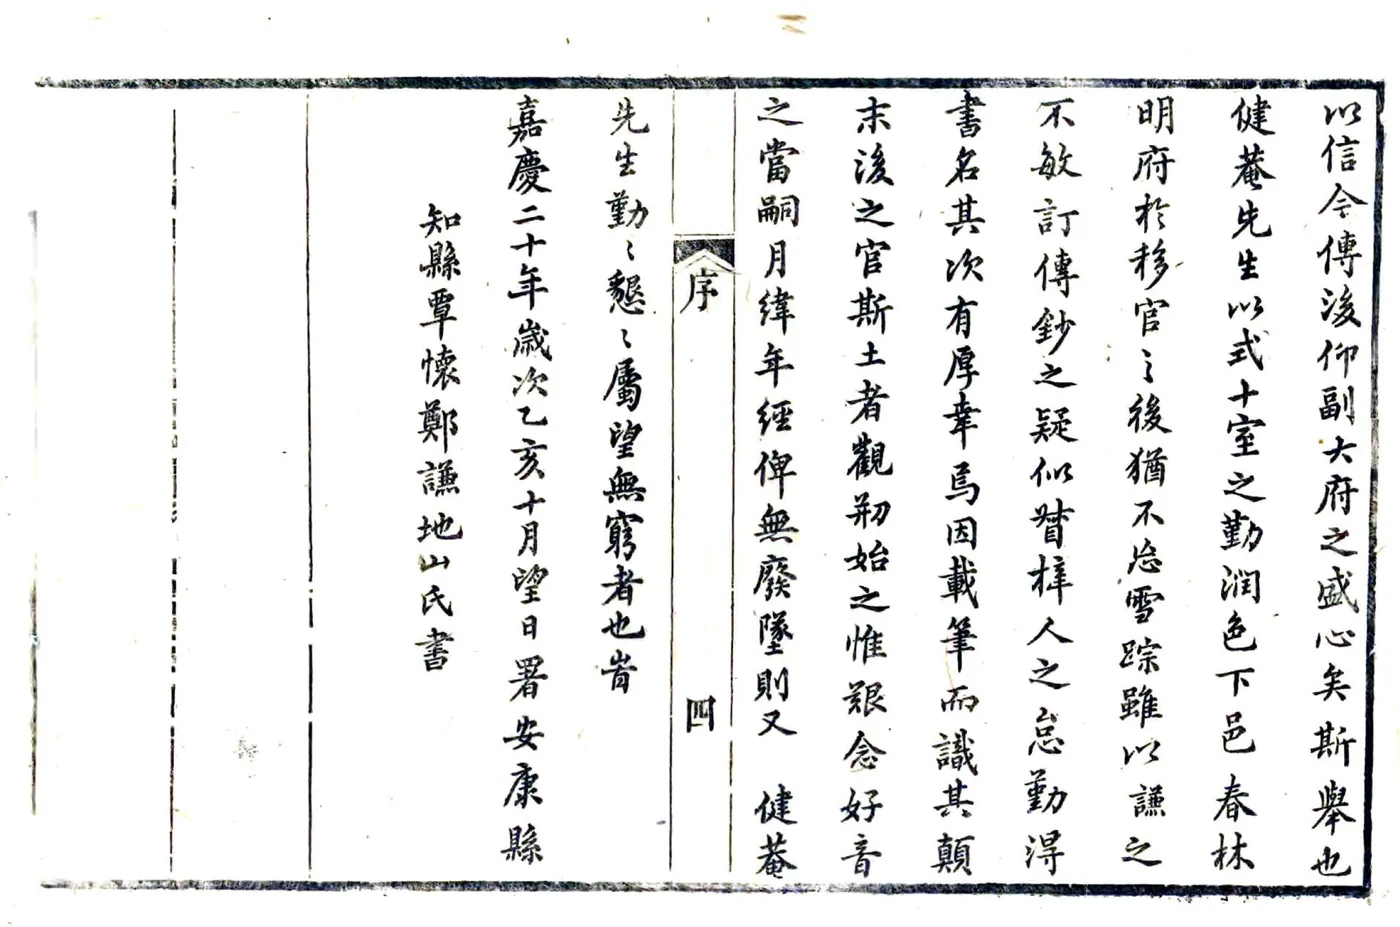 以信今傳後仰副大府之盛心矣斯舉也
健菴先生以式十室之勤潤色下邑春林
明府於移官之後猶不忘雪踪雖以謙之
不敏訂傳鈔之疑似督梓人之怠勤得
書名其次有厚幸焉因載筆而識其顛
末後之官斯土者觀刱始之惟艱念好音
之當嗣月緯年經俾無廢墜則又 健菴
序
四
先生勤〻懇〻屬望無窮者也旹
嘉慶二十年歲次乙亥十月望日署安康縣
知縣覃懷鄭謙地山氏書